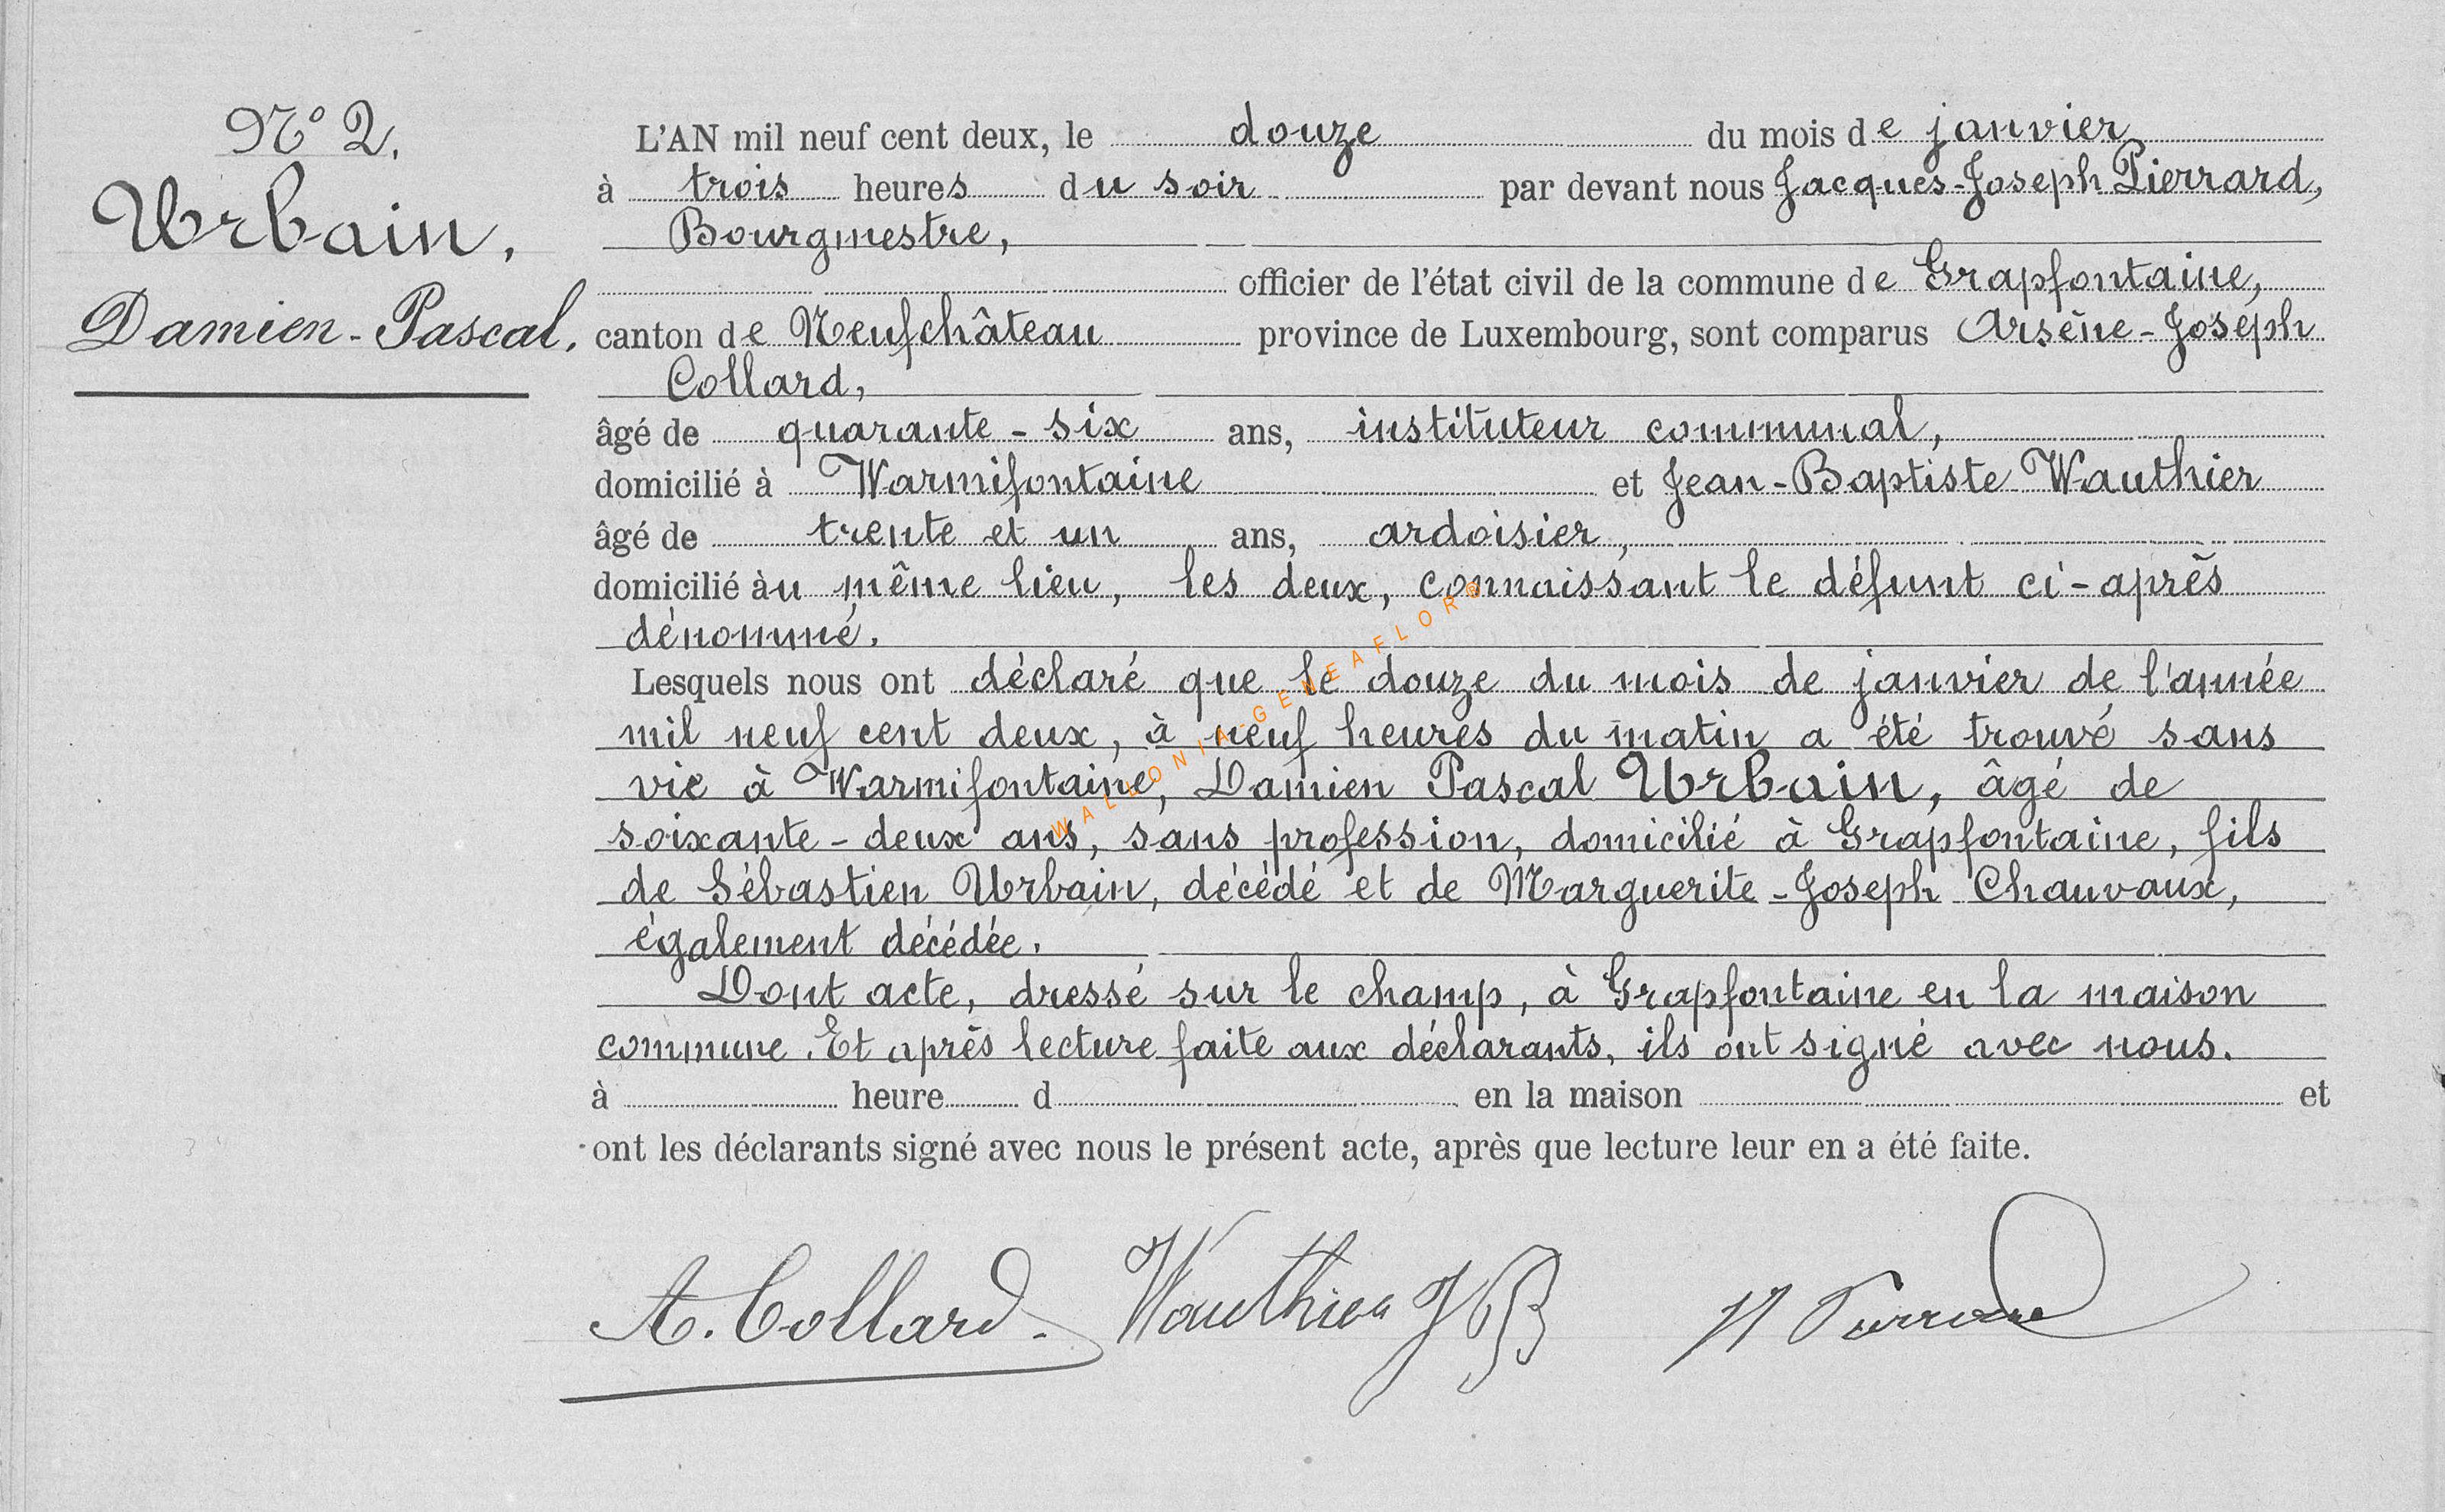 N° 2.
Urbain,
Damien-Pascal.
L'AN mil neuf cent deux, le douze du mois de janvier
à trois heures du soir par devant nous Jacques-Joseph Pierrard,
Bourgmestre,
officier de l'état civil de la commune de Grapfontaine,
canton de Neufchâteau province de Luxembourg, sont comparus Arsène-Joseph
Collard,
âgé de quarante-six ans, instituteur communal,
domicilié à Warmifontaine et Jean-Baptiste Wauthier
âgé de trente et un ans, ardoisier,
domicilié àu même lieu, les deux, connaissant le défunt ci-après
dénommé.
Lesquels nous ont déclaré que le douze du mois de janvier de l'année
mil neuf cent deux, à neuf heures du matin a été trouvé sans
vie à Warmifontaine, Damien Pascal Urbain, âgé de
soixante-deux ans, sans profession, domicilié à Grapfontaine, fils
de Sébastien Urbain, décédé et de Marguerite-Joseph Chauvaux,
également décédée.
Dont acte, dressé sur le champ, à Grapfontaine en la maison
commune. Et après lecture faite aux déclarants, ils ont signé avec nous.
à heure d en la maison et
ont les déclarants signé avec nous le présent acte, après que lecture leur en a été faite.
A. Collard. Wauthier JB Pierrard
WALLONIA-GENEAFLOR©